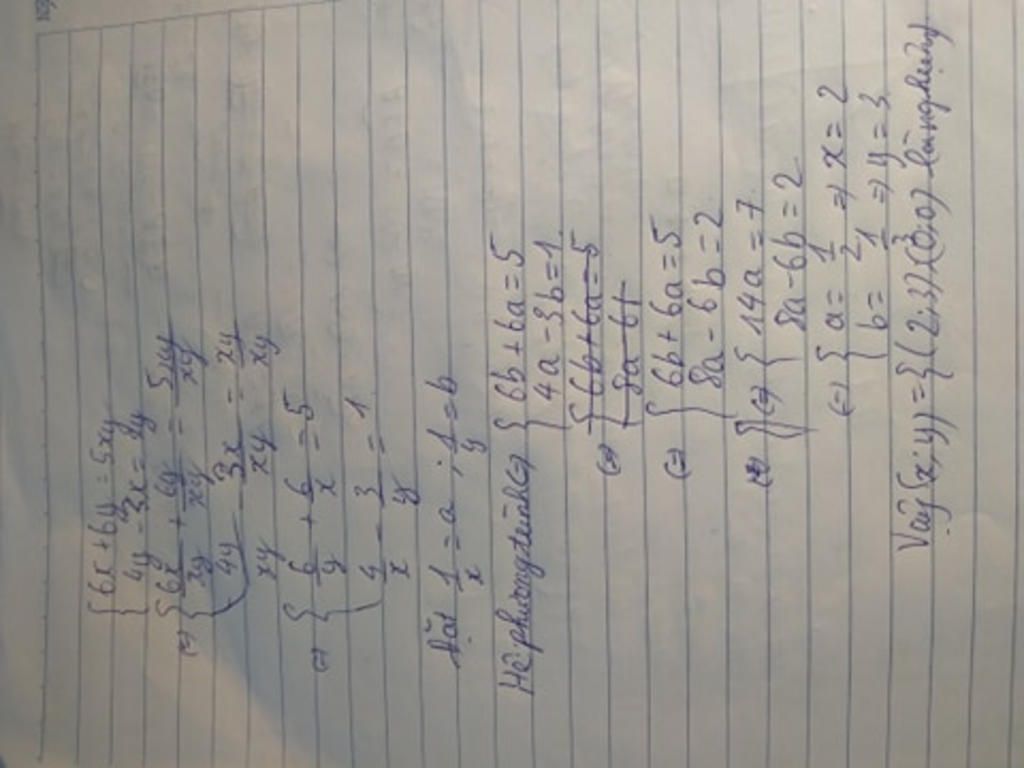 { 6x + 6y = 5xy
4y - 3x = xy
(=) { 6x/xy + 6y/xy = 5xy/xy
4y/xy - 3x/xy = xy/xy
(=) { 6/y + 6/x = 5
4/x - 3/y = 1
Đặt 1/x = a ; 1/y = b
Hệ phương trình (=) { 6b + 6a = 5
4a - 3b = 1
(=) { 6b + 6a = 5
8a - 6b
(=) { 6b + 6a = 5
8a - 6b = 2
(=) { 14a = 7
8a - 6b = 2
(=) { a = 1/2 => x = 2
b = 1/3 => y = 3
Vậy (x; y) = {(2; 3), (0; 0) là nghiệm}